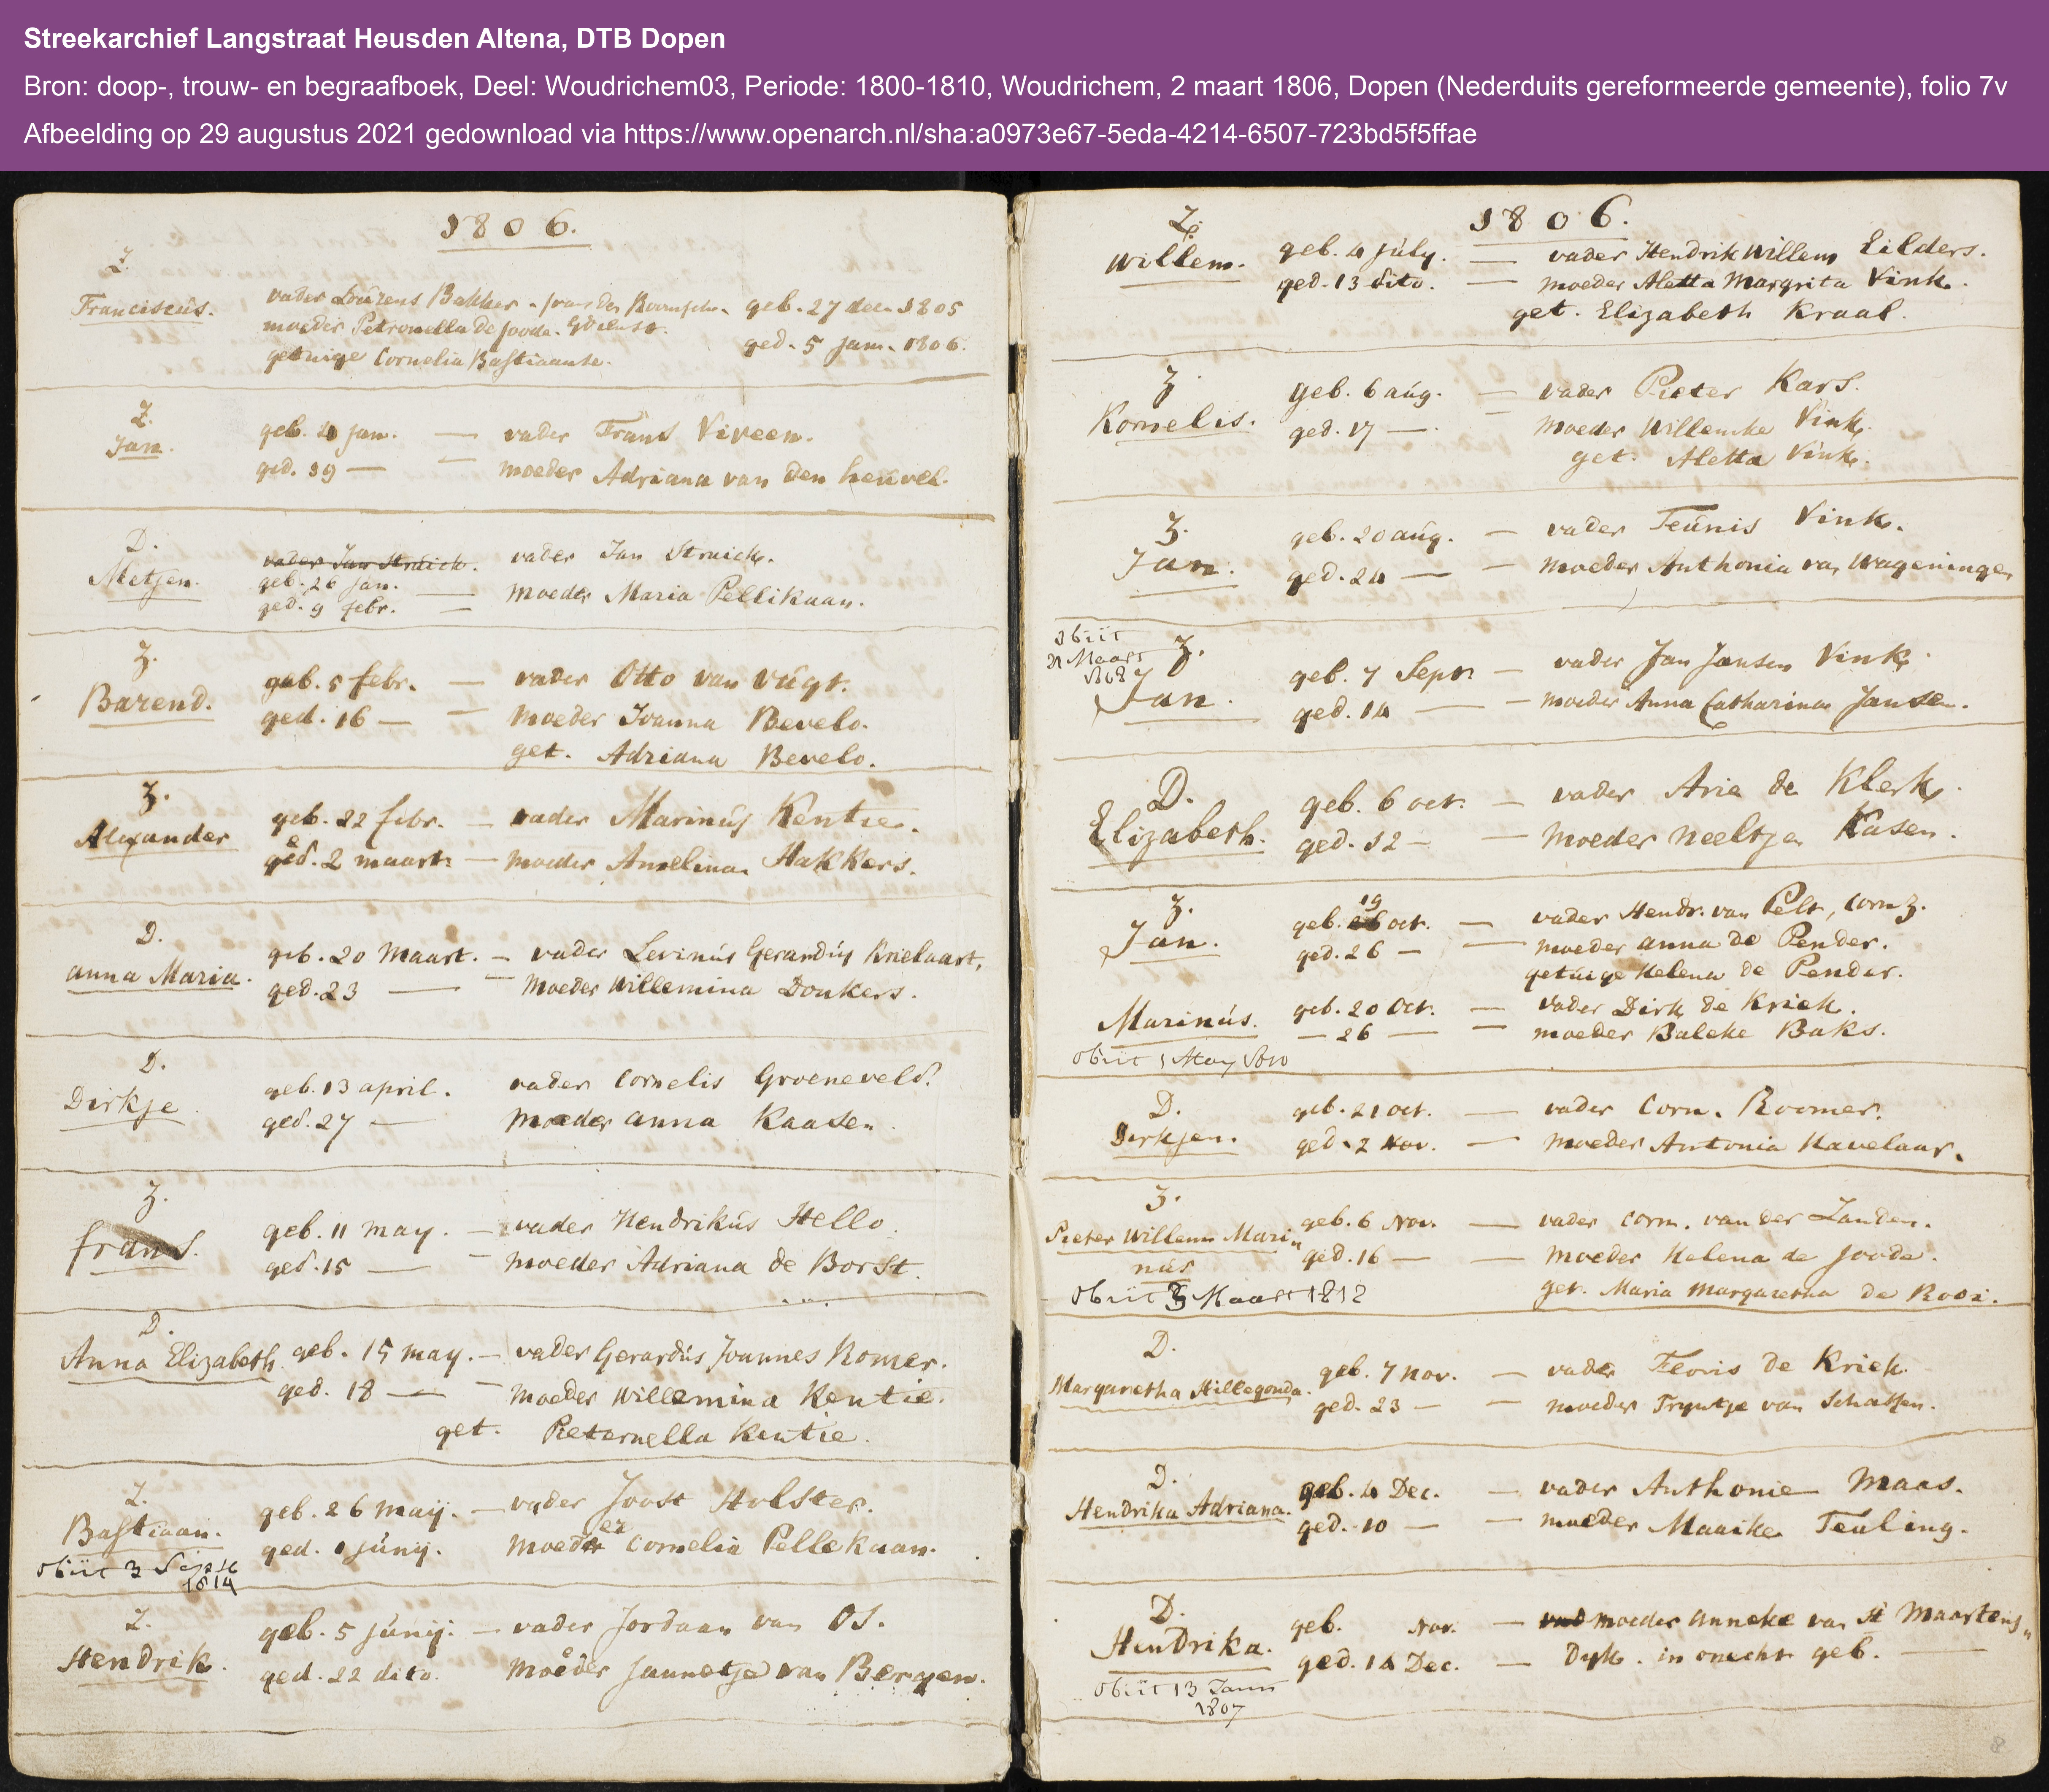 Streekarchief Langstraat Heusden Altena, DTB Dopen
Bron: doop-, trouw- en begraafboek, Deel: Woudrichem03, Periode: 1800-1810, Woudrichem, 2 maart 1806, Dopen (Nederduits gereformeerde gemeente), folio 7v
Afbeelding op 29 augustus 2021 gedownload via https://www.openarch.nl/sha:a0973e67-5eda-4214-6507-723bd5f5ffae
1806.
Z.
Franciscus. vader Loúrens Bakker geb. 27 dec. 1805
moeder Petronella de Joode.
getuige Cornelia Bastiaanse. ged. 5 jan. 1806.
Z.
Jan. geb. jan. — vader Frans Viveen.
ged. 19 — — moeder Adriana van den heúvel.
D.
Metjen. vader Jan Strúick. vader Jan Struick.
geb. 26 jan. — moeder Maria Pellikaan.
ged. 9 febr. —
Z.
Barend. geb. 5 febr. — vader Otto van Vúgt.
ged. 16 — — moeder Ioanna Bevelo.
get. Adriana Bevelo.
Z.
Alexander geb. 22 febr. — vader Marinús Kentie.
ged. 2 maart — moeder Amelina Hakkers.
D.
anna Maria. geb. 20 Maart. — vader Levinús Gerardús Krielaart,
ged. 23 — — moeder Willemina Donkers.
D.
Dirkje. geb. 13 april. vader Cornelis Groeneveld.
ged. 27 — moeder anna Kaasen.
Z.
frans. geb. 11 may. — vader Hendrikús Hello.
ged. 15 — — moeder Adriana de Borst.
D.
Anna Elizabeth geb. 15 may. — vader Gerardús Joannes Romer.
ged. 18 — — moeder Willemina Kentie.
get. Pieternella Kentie.
Z.
Bastiaan. geb. 26 maij. — vader Joost Holster.
ged. 1 júnij. moeder Cornelia Pellekaan.
obiit 3 Sept
1814
Z.
Hendrik. geb. 5 júnij. — vader Jordaan van Os.
ged. 22 dito. moeder Jannetje van Bergen.
1806.
Z.
Willem. geb. 4 júly. — vader Hendrik Willem Eilders.
ged. 13 dito. — moeder Aletta Margrita Vink.
get. Elizabeth Kraal.
Z
Kornelis. geb. 6 aúg. — vader Pieter Kars.
ged. 17 — — moeder Willemke Vink.
get. Aletta Vink.
Z.
Jan. geb. 20 aúg. — vader Teúnis Vink.
ged. 24 — — moeder Anthonia van Wageningen
obiit
21 Maart
1808
Z.
Jan. geb. 7 Sept — vader Jan Jansen Vink.
ged. 14 — — moeder Anna Catharina Jansen.
D.
Elizabeth. geb. 6 oct. — vader Arie de Klerk.
ged. 12 — — moeder Neeltje Kasen.
Z.
19
Jan. geb. oct. — vader Hendr. van Pelt, Corn. Z.
ged. 26 — — moeder anna de Pender.
getúige Helena de Pender.
Marinús. geb. 20 Oct. — vader Dirk de Kriek.
— 26 — — moeder Baleke Baks.
obiit 1 May 1810
D.
Dirkjen. geb. 21 oct. — vader Corn. Roomer.
ged. 2 Nov. — moeder Antonia Havelaar.
Z.
Pieter Willem Mari„ geb. 6 Nov. — vader Corn. van der Zanden.
nús ged. 16 — — moeder Helena de Joode.
obiit 3 Maart 1812 get. Maria Margaretha de Rooi.
D.
Margaretha Hillegonda. geb. 7 nov. — vader Floris de Kriek.
ged. 23 — — moeder Tryntje van Schaffen.
D.
Hendrika Adriana. geb. 4 Dec. — vader Anthonie Maas.
ged. 10 — — moeder Maaike Teuling.
D.
Hendrika. geb. Nov. — moeder anneke van St Maartens„
ged. 14 Dec. — Dyk. in onecht geb. —
obiit 13 Jann
1807
8